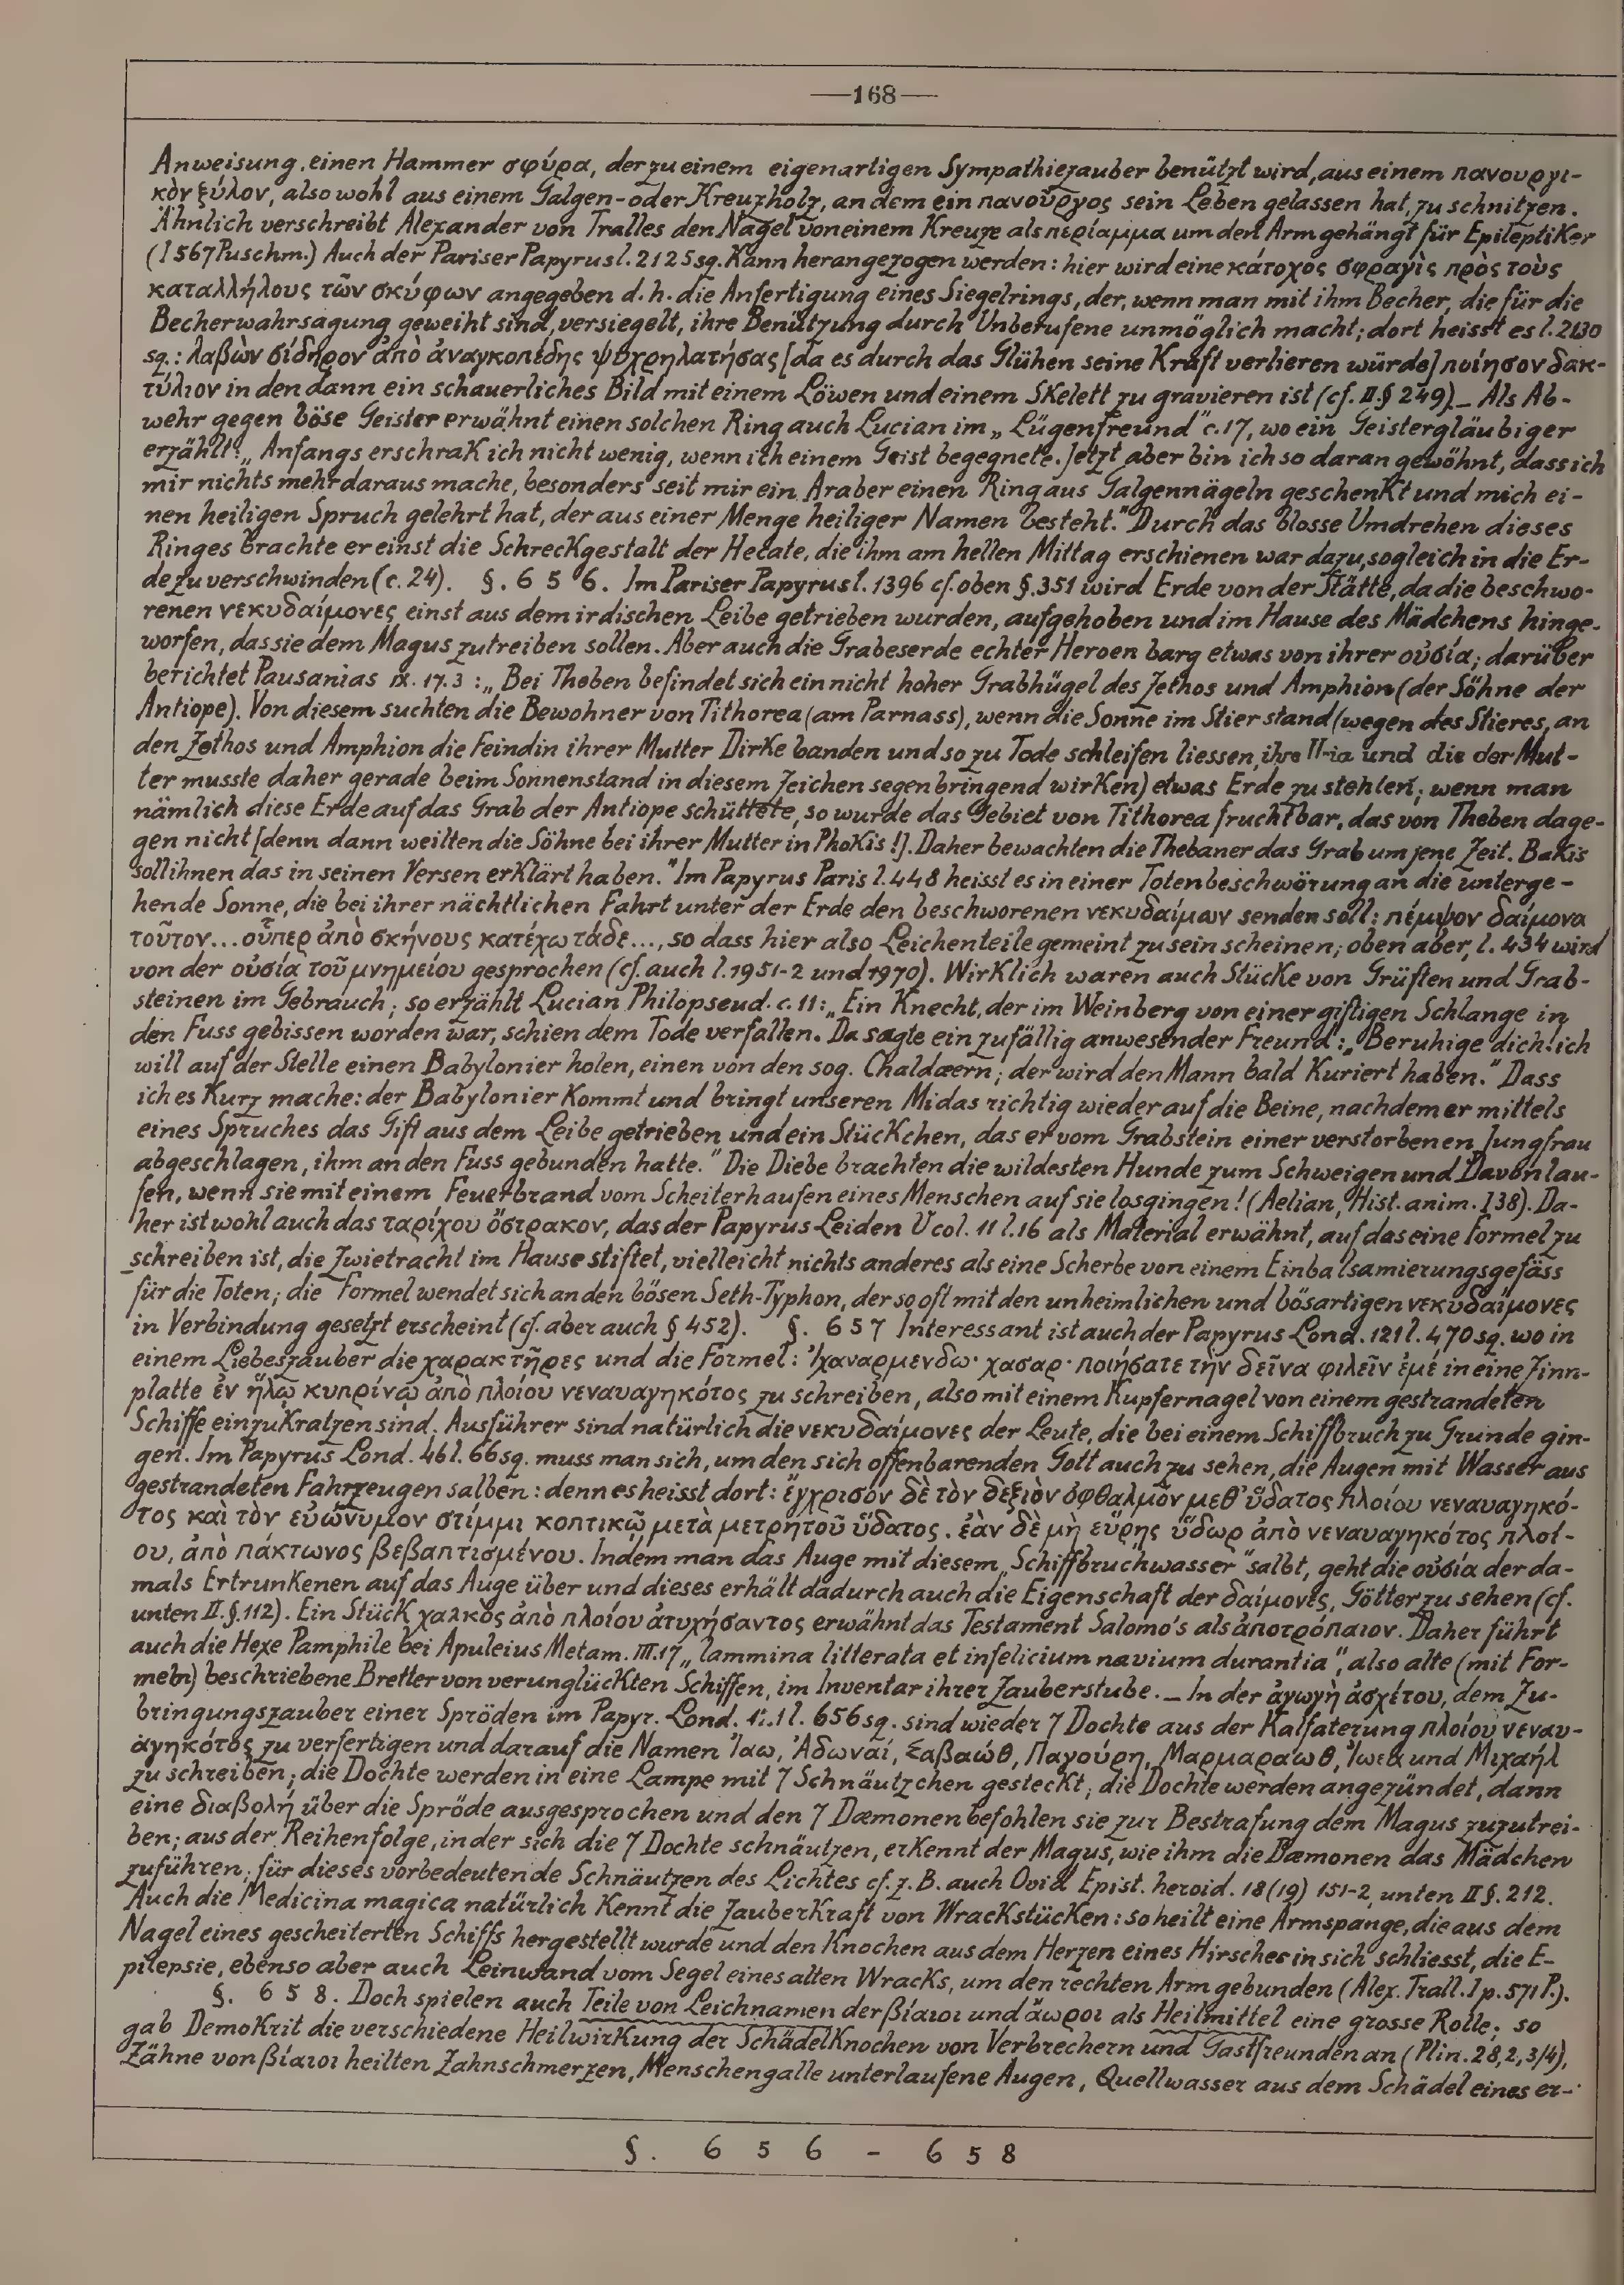 —168—
Anweisung, einen Hammer σφύρα, der zu einem eigenartigen Sympathiezauber benützt wird, aus einem πανουργι-
κὸν ξύλον, also wohl aus einem Galgen- oder Kreuzholz, an dem ein πανοῦργος sein Leben gelassen hat, zu schnitzen.
Ähnlich verschreibt Alexander von Tralles den Nagel von einem Kreuze als περίαμμα um den Arm gehängt für Epileptiker
(I 567 Puschm.) Auch der Pariser Papyrus l. 2125 sq. kann herangezogen werden: hier wird eine κάτοχος σφραγὶς πρὸς τοὺς
καταλλήλους τῶν σκύφων angegeben d. h. die Anfertigung eines Siegelrings, der, wenn man mit ihm Becher, die für die
Becherwahrsagung geweiht sind, versiegelt, ihre Benützung durch Unberufene unmöglich macht; dort heisst es l. 2130
sq.: λαβὼν σίδηρον ἀπὸ ἀναγκοπέδης ψυχρηλατήσας [da es durch das Glühen seine Kraft verlieren würde] ποίησον δακ-
τύλιον in den dann ein schauerliches Bild mit einem Löwen und einem Skelett zu gravieren ist (cf. II. § 249). _ Als Ab-
wehr gegen böse Geister erwähnt einen solchen Ring auch Lucian im „Lügenfreund" c. 17, wo ein Geistergläubiger
erzählt: „Anfangs erschrak ich nicht wenig, wenn ich einem Geist begegnete. Jetzt aber bin ich so daran gewöhnt, dass ich
mir nichts mehr daraus mache, besonders seit mir ein Araber einen Ring aus Galgennägeln geschenkt und mich ei-
nen heiligen Spruch gelehrt hat, der aus einer Menge heiliger Namen besteht." Durch das blosse Umdrehen dieses
Ringes brachte er einst die Schreckgestalt der Hecate, die ihm am hellen Mittag erschienen war dazu, sogleich in die Er-
de zu verschwinden (c. 24). §. 6 5 6. Im Pariser Papyrus l. 1396 cf. oben §. 351 wird Erde von der Stätte, da die beschwo-
renen νεκυδαίμονες einst aus dem irdischen Leibe getrieben wurden, aufgehoben und im Hause des Mädchens hinge-
worfen, das sie dem Magus zutreiben sollen. Aber auch die Grabeserde echter Heroen barg etwas von ihrer οὐσία; darüber
berichtet Pausanias IX. 17. 3: „Bei Theben befindet sich ein nicht hoher Grabhügel des Zethos und Amphion (der Söhne der
Antiope). Von diesem suchten die Bewohner von Tithorea (am Parnass), wenn die Sonne im Stier stand (wegen des Stieres, an
den Zethos und Amphion die Feindin ihrer Mutter Dirke banden und so zu Tode schleifen liessen, ihre und die der Mut-
ter musste daher gerade beim Sonnenstand in diesem Zeichen segenbringend wirken) etwas Erde zu stehlen; wenn man
nämlich diese Erde auf das Grab der Antiope schüttete, so wurde das Gebiet von Tithorea fruchtbar, das von Theben dage-
gen nicht [denn dann weilten die Söhne bei ihrer Mutter in Phokis!]. Daher bewachten die Thebaner das Grab um jene Zeit. Bakis
soll ihnen das in seinen Versen erklärt haben." Im Papyrus Paris l. 448 heisst es in einer Totenbeschwörung an die unterge-
hende Sonne, die bei ihrer nächtlichen Fahrt unter der Erde den beschworenen νεκυδαίμων senden soll: πέμψον δαίμονα
τοῦτον... οὗπερ ἀπὸ σκήνους κατέχω τάδε..., so dass hier also Leichenteile gemeint zu sein scheinen; oben aber, l. 434 wird
von der οὐσία τοῦ μνημείου gesprochen (cf. auch l. 1951-2 und 1970). Wirklich waren auch Stücke von Grüften und Grab-
steinen im Gebrauch; so erzählt Lucian Philopseud. c. 11: „Ein Knecht, der im Weinberg von einer giftigen Schlange in
den Fuss gebissen worden war, schien dem Tode verfallen. Da sagte ein zufällig anwesender Freund: „Beruhige dich: ich
will auf der Stelle einen Babylonier holen, einen von den sog. Chaldæern; der wird den Mann bald kuriert haben." Dass
ich es kurz mache: der Babylonier kommt und bringt unseren Midas richtig wieder auf die Beine, nachdem er mittels
eines Spruches das Gift aus dem Leibe getrieben und ein Stückchen, das er vom Grabstein einer verstorbenen Jungfrau
abgeschlagen, ihm an den Fuss gebunden hatte." Die Diebe brachten die wildesten Hunde zum Schweigen und Davonlau-
fen, wenn sie mit einem Feuerbrand vom Scheiterhaufen eines Menschen auf sie losgingen! (Aelian, Hist. anim. I 38). Da-
her ist wohl auch das ταρίχου ὄστρακον, das der Papyrus Leiden V col. 11 l. 16 als Material erwähnt, auf das eine Formel zu
schreiben ist, die Zwietracht im Hause stiftet, vielleicht nichts anderes als eine Scherbe von einem Einbalsamierungsgefäss
für die Toten; die Formel wendet sich an den bösen Seth-Typhon, der so oft mit den unheimlichen und bösartigen νεκυδαίμονες
in Verbindung gesetzt erscheint (cf. aber auch § 452). §. 6 5 7 Interessant ist auch der Papyrus Lond. 121 l. 470 sq. wo in
einem Liebeszauber die χαρακτῆρες und die Formel: Ἰχαναρμενδω· χασαρ· ποιήσατε τὴν δεῖνα φιλεῖν ἐμέ in eine Zinn-
platte ἐν ἥλῳ κυπρίνῳ ἀπὸ πλοίου νεναυαγηκότος zu schreiben, also mit einem Kupfernagel von einem gestrandeten
Schiffe einzukratzen sind. Ausführer sind natürlich die νεκυδαίμονες der Leute, die bei einem Schiffbruch zu Grunde gin-
gen. Im Papyrus Lond. 46 l. 66 sq. muss man sich, um den sich offenbarenden Gott auch zu sehen, die Augen mit Wasser aus
gestrandeten Fahrzeugen salben: denn es heisst dort: ἔγχρισόν δὲ τὸν δεξιὸν ὀφθαλμὸν μεθ' ὕδατος πλοίου νεναυαγηκό-
τος καὶ τὸν εὐώνυμον στίμμι κοπτικῷ μετὰ μετρητοῦ ὕδατος. ἐὰν δὲ μὴ εὕρῃς ὕδωρ ἀπὸ νεναυαγηκότος πλοί-
ου, ἀπὸ πάκτωνος βεβαπτισμένου. Indem man das Auge mit diesem „Schiffbruchwasser" salbt, geht die οὐσία der da-
mals Ertrunkenen auf das Auge über und dieses erhält dadurch auch die Eigenschaft der δαίμονες, Götter zu sehen (cf.
unten II. §. 112). Ein Stück χαλκὸς ἀπὸ πλοίου ἀτυχήσαντος erwähnt das Testament Salomo's als ἀποτρόπαιον. Daher führt
auch die Hexe Pamphile bei Apuleius Metam. III. 17 „lammina litterata et infelicium navium durantia", also alte (mit For-
meln) beschriebene Bretter von verunglückten Schiffen, im Inventar ihrer Zauberstube. _ In der ἀγωγὴ ἀσχέτου, dem Zu-
bringungszauber einer Spröden im Papyr. Lond. l. 656 sq. sind wieder 7 Dochte aus der Kalfaterung πλοίου νεναυ-
αγηκότος zu verfertigen und darauf die Namen Ἰαω, Ἀδωναί, Σαβαώθ, Παγούρη, Μαρμαραωθ, Ἰωεα und Μιχαήλ
zu schreiben; die Dochte werden in eine Lampe mit 7 Schnäutzchen gesteckt; die Dochte werden angezündet, dann
eine διαβολή über die Spröde ausgesprochen und den 7 Dæmonen befohlen sie zur Bestrafung dem Magus zuzutrei-
ben; aus der Reihenfolge, in der sich die 7 Dochte schnäutzen, erkennt der Magus, wie ihm die Dæmonen das Mädchen
zuführen; für dieses vorbedeutende Schnäutzen des Lichtes cf. z. B. auch Ovid Epist. heroid. 18 (19) 151-2, unten II §. 212.
Auch die Medicina magica natürlich kennt die Zauberkraft von Wrackstücken: so heilt eine Armspange, die aus dem
Nagel eines gescheiterten Schiffs hergestellt wurde und den Knochen aus dem Herzen eines Hirsches in sich schliesst, die E-
pilepsie, ebenso aber auch Leinwand vom Segel eines alten Wracks, um den rechten Arm gebunden (Alex. Trall. I p. 571 P.).
§. 6 5 8. Doch spielen auch Teile von Leichnamen der βίαιοι und ἄωροι als Heilmittel eine grosse Rolle; so
gab Demokrit die verschiedene Heilwirkung der Schädelknochen von Verbrechern und Gastfreunden an (Plin. 28, 2, 3/4),
Zähne von βίαιοι heilten Zahnschmerzen, Menschengalle unterlaufene Augen, Quellwasser aus dem Schädel eines er-
§. 6 5 6 - 6 5 8